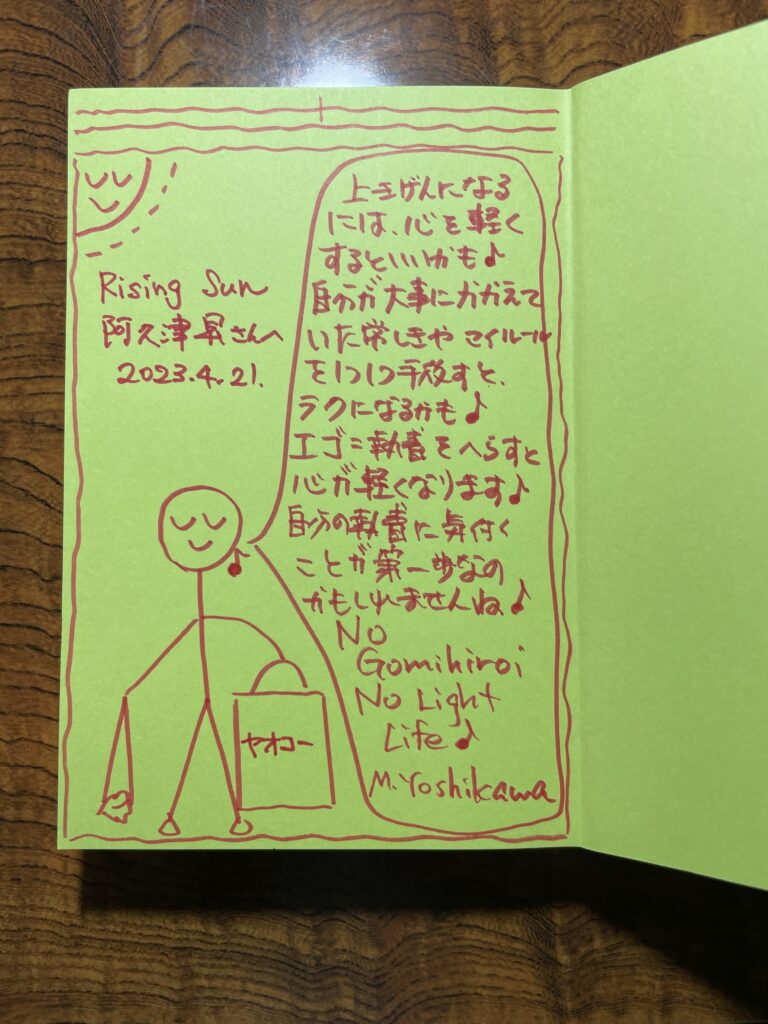 Rising Sun
阿久津昇さんへ
2023.4.21.
上きげんになる
には、心を軽く
するといいかも♪
自分が大事にかかえて
いた常しきやマイルール
を1つ1つ手放すと、
ラクになるかも♪
エゴ=執着をへらすと
心が軽くなります♪
自分の執着に気付く
ことが第一歩なの
かもしれませんね♪
No
Gomihiroi
No Light
Life♪
M.Yoshikawa
ヤオコー